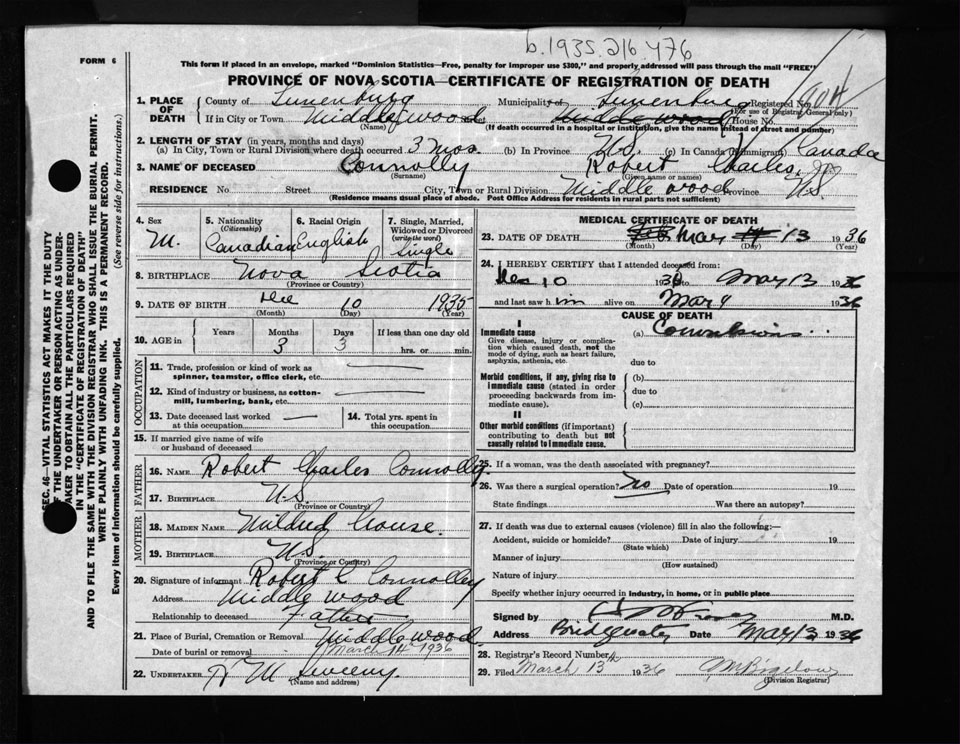 b.1935.216476
FORM 6
This form if placed in an envelope, marked "Dominion Statistics—Free, penalty for improper use $300," and properly addressed will pass through the mail "FREE"
PROVINCE OF NOVA SCOTIA—CERTIFICATE OF REGISTRATION OF DEATH
1. PLACE OF DEATH County of Lunenburg Municipality of Lunenburg Registered No.
(For use of Registrar General only)
If in City or Town Middlewood Middlewood House No.
(Name) (If death occurred in a hospital or institution, give the name instead of street and number)
2. LENGTH OF STAY (in years, months and days)
(a) In City, Town or Rural Division where death occurred 3 mos. (b) In Province N.S. (c) In Canada (if immigrant) Canada
3. NAME OF DECEASED Connolly Robert Charles, Jr.
(Surname) (Given name or names)
RESIDENCE No. Street City, Town or Rural Division Middlewood Province N.S.
(Residence means usual place of abode. Post Office Address for residents in rural parts not sufficient)
4. Sex M.
5. Nationality (Citizenship) Canadian
6. Racial Origin English
7. Single, Married, Widowed or Divorced (write the word) Single
8. BIRTHPLACE Nova Scotia
(Province or Country)
9. DATE OF BIRTH Dec 10 1935
(Month) (Day) (Year)
10. AGE in Years Months Days If less than one day old
3 3 hrs. or min.
OCCUPATION
11. Trade, profession or kind of work as spinner, teamster, office clerk, etc. —
12. Kind of industry or business, as cotton-mill, lumbering, bank, etc. —
13. Date deceased last worked at this occupation —
14. Total yrs. spent in this occupation
15. If married give name of wife or husband of deceased
FATHER
16. NAME Robert Charles Connolly.
17. BIRTHPLACE N.S.
(Province or Country)
MOTHER
18. MAIDEN NAME Mildred Crouse.
19. BIRTHPLACE N.S.
(Province or Country)
20. Signature of informant Robert C Connolley
Address Middlewood
Relationship to deceased Father
21. Place of Burial, Cremation or Removal Middlewood
Date of burial or removal March 14 1936
22. UNDERTAKER M Sweeny.
(Name and address)
MEDICAL CERTIFICATE OF DEATH
23. DATE OF DEATH Mar 13 1936
(Month) (Day) (Year)
24. I HEREBY CERTIFY that I attended deceased from:
Dec 10 193 to Mar 13 1936
and last saw him alive on Mar 9 1936
CAUSE OF DEATH
I
Immediate cause (a) Convulsions
Give disease, injury or complication which caused death, not the mode of dying, such as heart failure, asphyxia, asthenia, etc.
due to
Morbid conditions, if any, giving rise to immediate cause (stated in order proceeding backwards from immediate cause).
(b)
due to
(c)
II
Other morbid conditions (if important) contributing to death but not causally related to immediate cause.
25. If a woman, was the death associated with pregnancy?
26. Was there a surgical operation? No Date of operation 19
State findings Was there an autopsy?
27. If death was due to external causes (violence) fill in also the following:—
Accident, suicide or homicide? Date of injury 19
(State which)
Manner of injury
(How sustained)
Nature of injury
Specify whether injury occurred in industry, in home, or in public place
Signed by M.D.
Address Bridgewater Date Mar 13 1936
28. Registrar's Record Number
29. Filed March 13th 1936 M Bigelow
(Division Registrar)
SEC. 46—VITAL STATISTICS ACT MAKES IT THE DUTY
OF THE UNDERTAKER OR PERSON ACTING AS UNDER-
TAKER TO OBTAIN ALL THE PARTICULARS REQUIRED
IN THE "CERTIFICATE OF REGISTRATION OF DEATH"
AND TO FILE THE SAME WITH THE DIVISION REGISTRAR WHO SHALL ISSUE THE BURIAL PERMIT.
WRITE PLAINLY WITH UNFADING INK. THIS IS A PERMANENT RECORD.
Every item of Information should be carefully supplied. (See reverse side for instructions.)